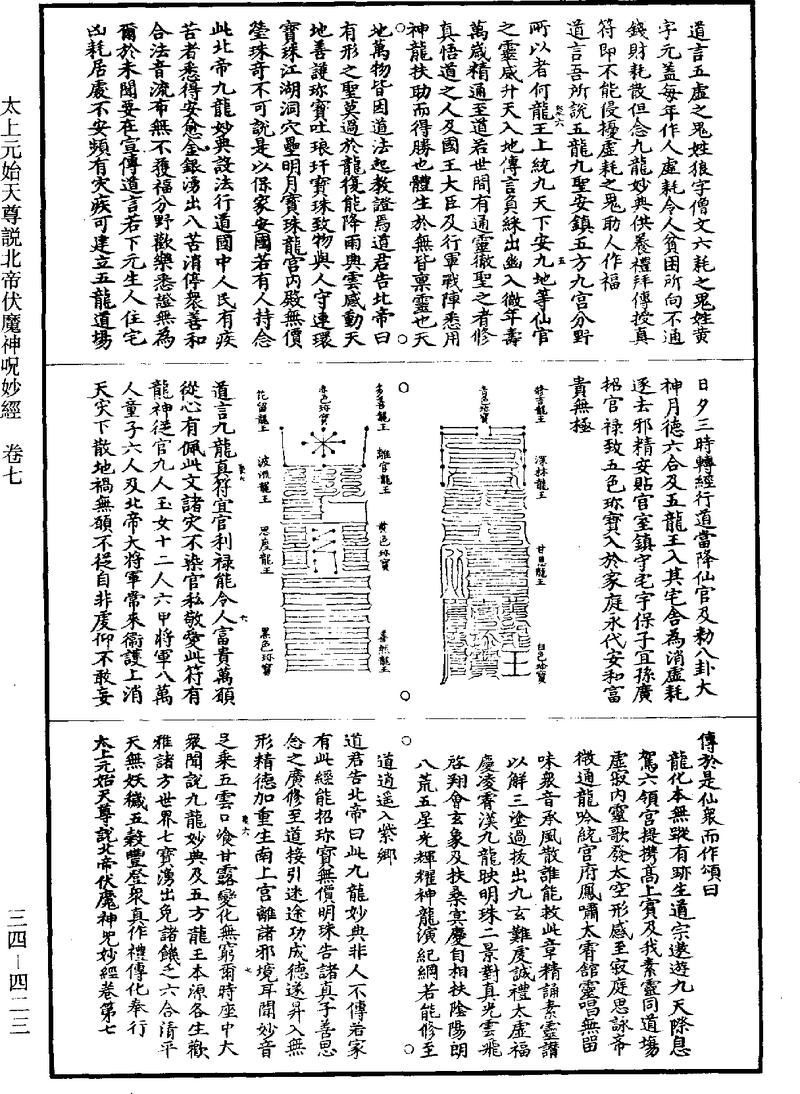 太上元始天尊説北帝伏魔神呪妙經　卷七
三四—四二三
道言五虛之鬼姓狼字僧文六耗之鬼姓黄
字元蓋每年作人虛耗令人貧困所向不通
錢財耗散但念九龍妙典供養禮拜傳授真
符即不能侵擾虛耗之鬼助人作福
道言吾所說五龍九聖安鎮五方九宫分野
所以者何龍王上統九天下安九地等仙官
之靈感升天入地傳言負綵出幽入微年壽
萬歲精通至道若世間有通靈徹聖之者修
真悟道之人及國王大臣及行軍戰陣悉用
神龍扶助而得勝也體生於無皆稟靈也天
地萬物皆因道法起教證焉道君告北帝曰
有形之聖莫過於龍復能降雨興雲感動天
地善護珎寶吐琅玕寶珠致物與人守連環
寶珠江湖洞穴壘明月寶珠龍宫内殿無價
瑩珠奇不可說是以保家安國若有人持念
此北帝九龍妙典設法行道國中人民有疾
苦者悉得安愈金銀湧出八苦消停衆善和
合法音流布無不獲福分野歡樂悉證無為
爾於未聞要在宣傳道言若下元生人住宅
凶耗居處不安頻有灾疾可建立五龍道場
日夕三時轉經行道當降仙官及勑八卦大
神月德六合及五龍王入其宅舍為消虛耗
逐去邪精安貼官室鎮守宅宇保子宜孫廣
招官禄致五色珎寶入於家庭永代安和富
貴無極
青色珎寶
深林龍王
甘思龍王
白色珎寶
赤色珎寶
離宫龍王
黄色珎寶
花留龍王
波浪龍王
思度龍王
黑色珎寶
道言九龍真符宜官利禄能令人富貴萬願
從心有佩此文諸灾不染官私敬愛此符有
龍神從官九人玉女十二人六甲將軍八萬
人童子六人及北帝大將軍常來衛護上消
天灾下散地禍無願不從自非虔仰不敢妄
傳於是仙衆而作頌曰
龍化本無蹤有跡生道宗遨遊九天際息
駕六領宫提攜高上賓及我素靈同道場
虛寂内靈歌發太空形感至寂庭思詠希
微通龍吟統官府鳳嘯太霄舘靈唱無留
味衆音承風散誰能教此章精誦素靈讚
以解三塗過拔出九玄難度誠禮太虛福
慶凌霄漢九龍映明珠二景對真光雲飛
啓翔會玄象及扶桑冥慶自相扶陰陽朗
八荒五星光輝耀神龍演紀綱若能修至
道逍遥入紫鄉
道君告北帝曰此九龍妙典非人不傳若家
有此經能招珎寶無價明珠告諸真子善思
念之廣修至道接引迷途功成德遂昇入無
形精德加重生南上宫離諸邪境耳聞妙音
足乘五雲口飡甘露變化無窮爾時座中大
衆聞說九龍妙典及五方龍王本源各生歡
雅諸方世界七寶湧出免諸饑乏六合清平
天無妖穢五榖豐登衆真作禮傳化奉行
太上元始天尊說北帝伏魔神咒妙經卷第七